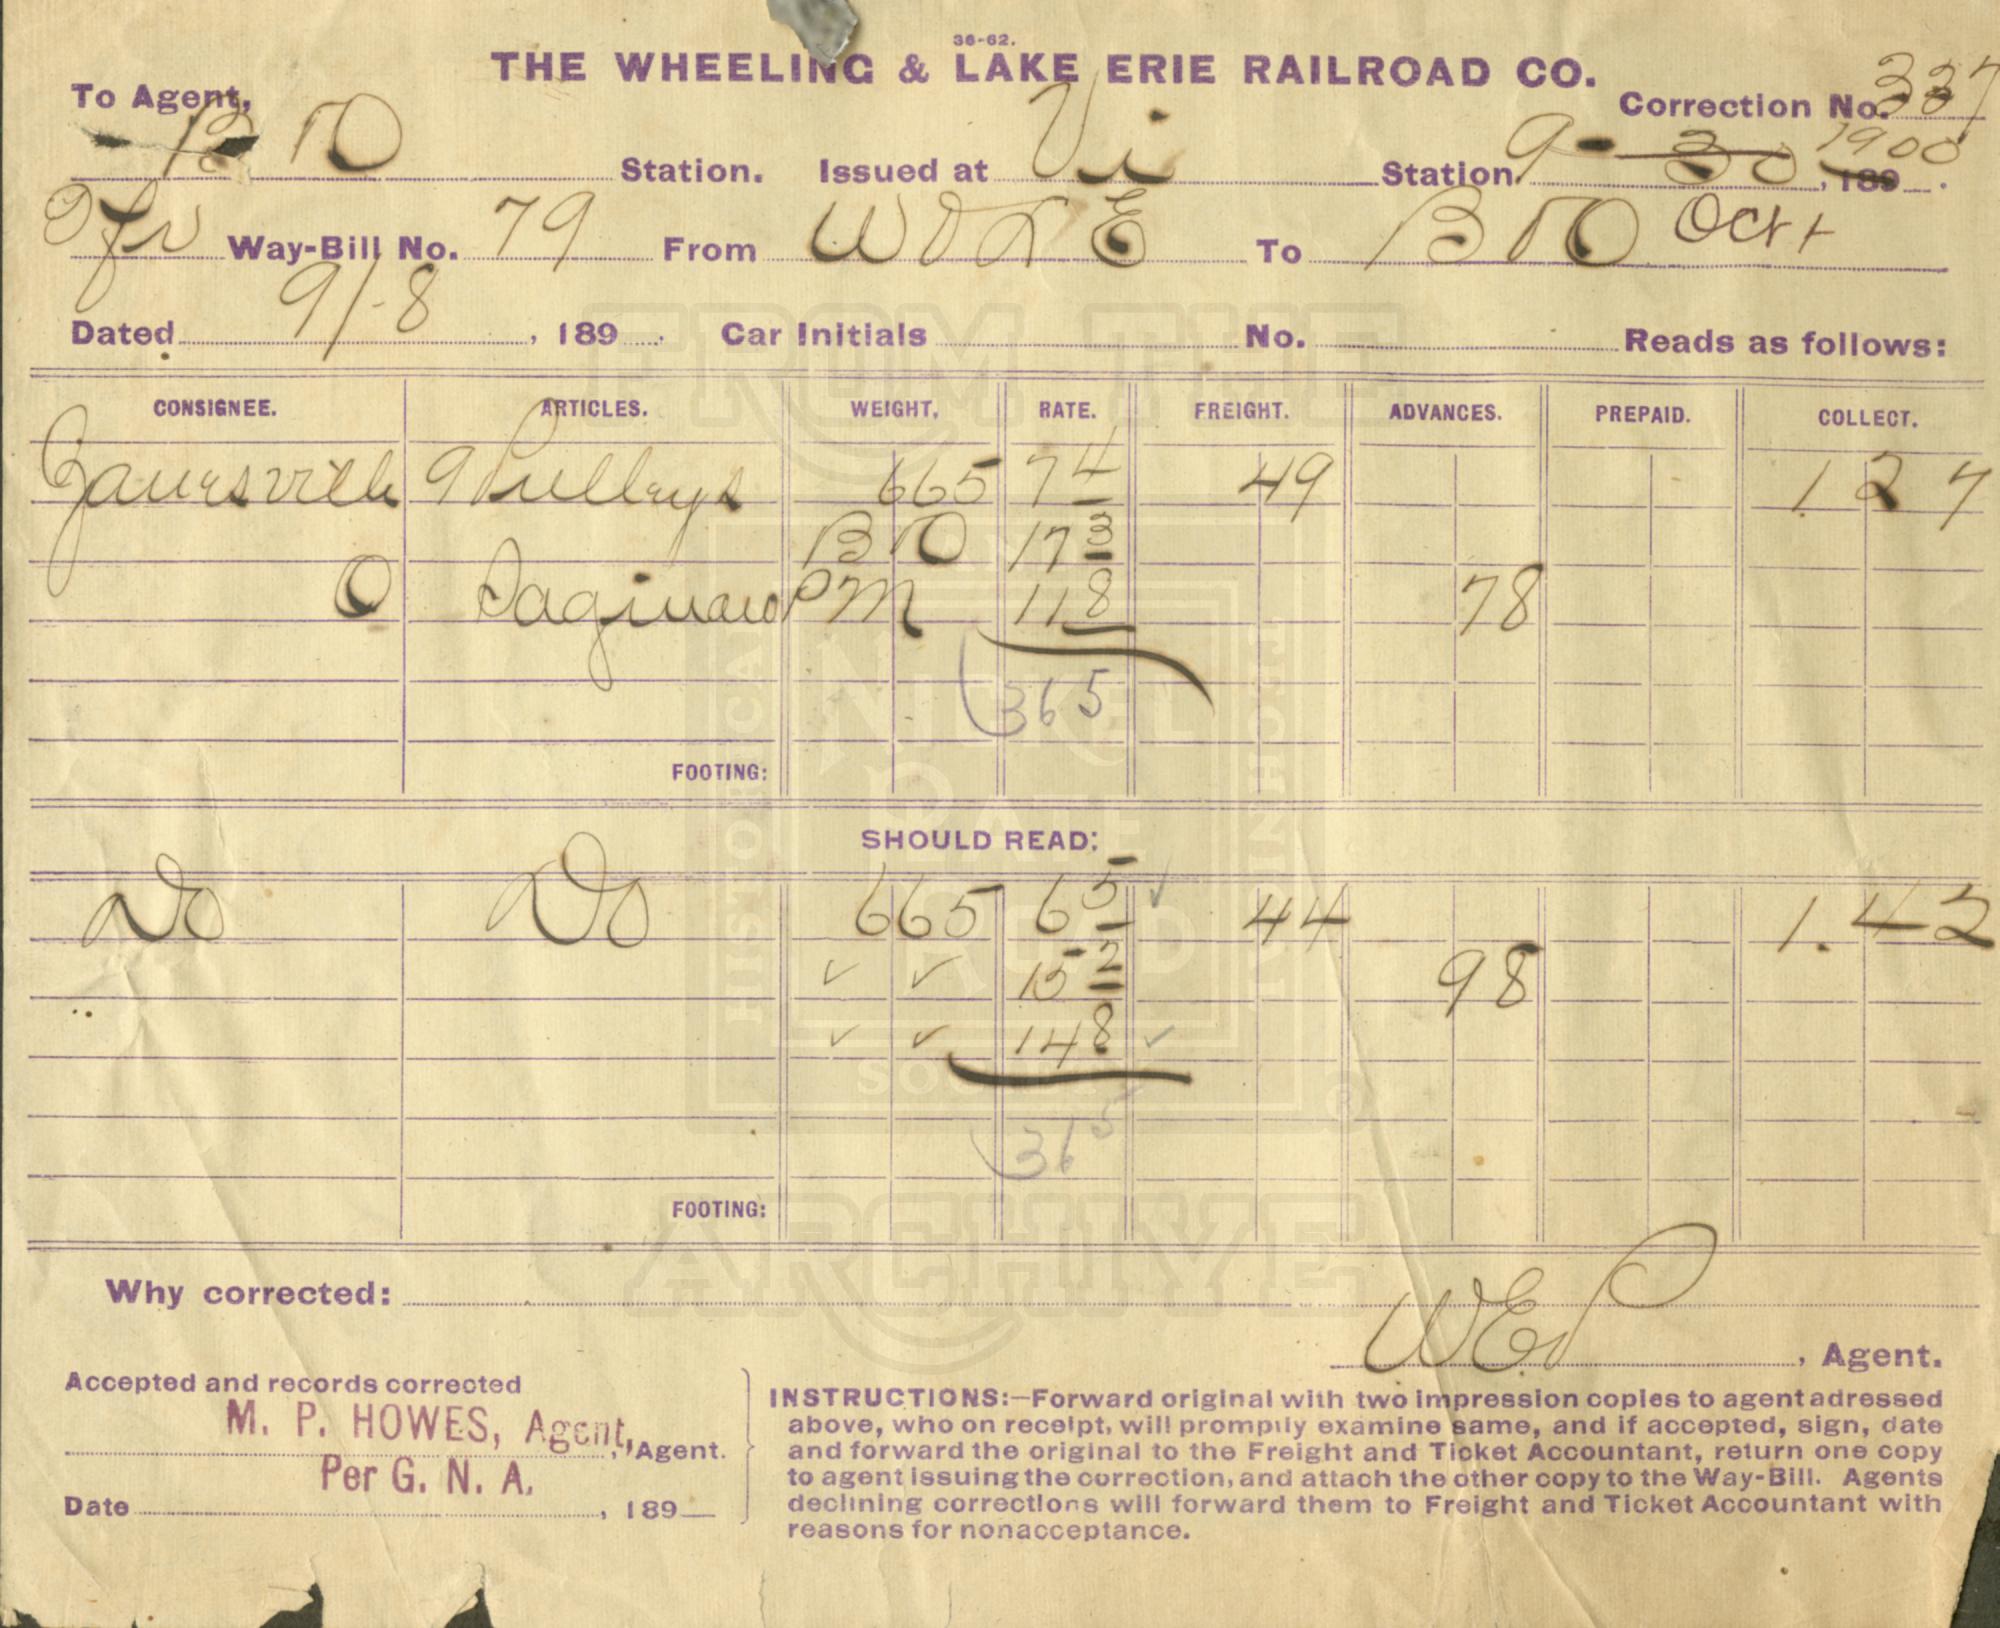 36-62.
THE WHEELING & LAKE ERIE RAILROAD CO.
To Agent, Correction No. 337
B & O Station. Issued at Vi Station. 9-30 1900, 189 .
Ofr Way-Bill No. 79 From W & L E To B & O Oct 1
Dated 9/-8, 189 . Car Initials No. Reads as follows:
CONSIGNEE. ARTICLES. WEIGHT. RATE. FREIGHT. ADVANCES. PREPAID. COLLECT.
Zanesville 9 Pulleys 665 7 4 49 1.27
B & O 17 3
O Saginaw PM 11 8 78
36 5
FOOTING:
SHOULD READ:
Do Do 665 6 5 ✓ 44 1.42
✓ ✓ 15 2 98
✓ ✓ 14 8 ✓
36 5
FOOTING:
Why corrected:
WEP, Agent.
Accepted and records corrected
M. P. HOWES, Agent, Agent.
Per G. N. A.
Date , 189
INSTRUCTIONS:—Forward original with two impression copies to agent adressed
above, who on receipt, will promptly examine same, and if accepted, sign, date
and forward the original to the Freight and Ticket Accountant, return one copy
to agent issuing the correction, and attach the other copy to the Way-Bill. Agents
declining corrections will forward them to Freight and Ticket Accountant with
reasons for nonacceptance.
FROM THE
NICKEL
PLATE
ROAD
HISTORICAL
TECHNICAL
SOCIETY
ARCHIVE